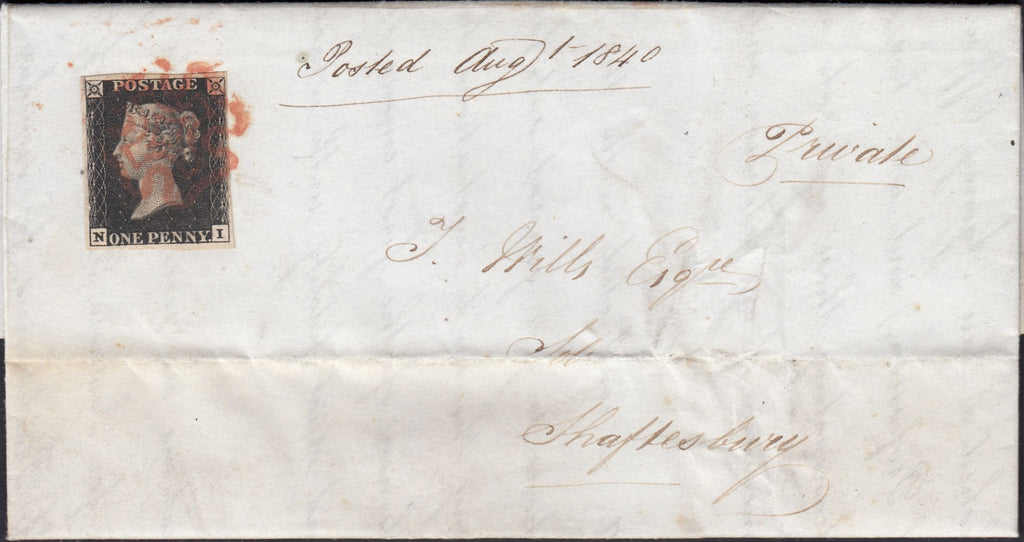 Posted Augt 1840
POSTAGE
N ONE PENNY. I
Private
J Wills Esqre
Shaftesbury